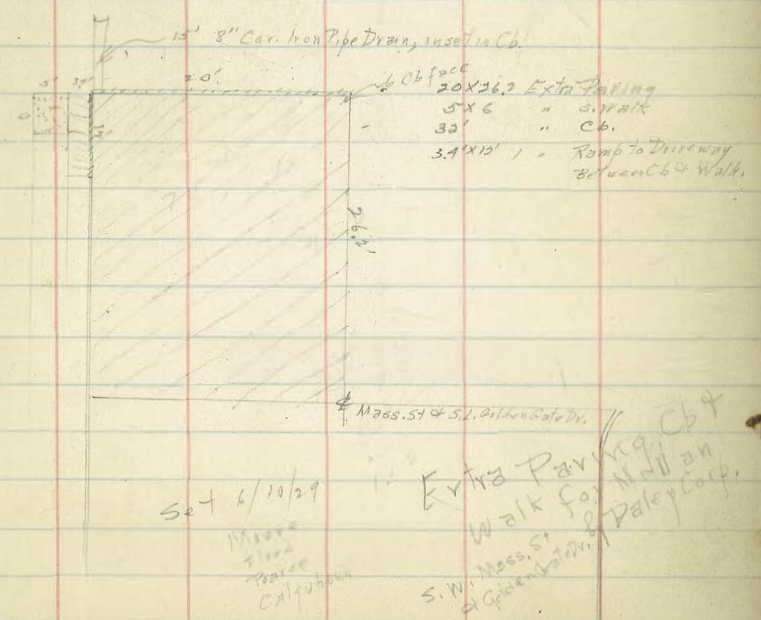 15' 8" Cor. Iron Pipe Drain, inset in Cb.
20'
Cb face
5'
3.4'
6'
12'
20 X 26.2 Extra Paving
5 X 6 " S. Walk
32' " Cb.
3.4' X 12' " Ramp to Driveway
Between Cb & Walk.
26.2'
Mass. St & S.L. Golden Gate Dr.
Set 6/10/29
Moore
Pearce
Extra Paving, Cb &
Walk for
& Daley Corp.
S.W. Mass. St
& Golden Gate Dr.